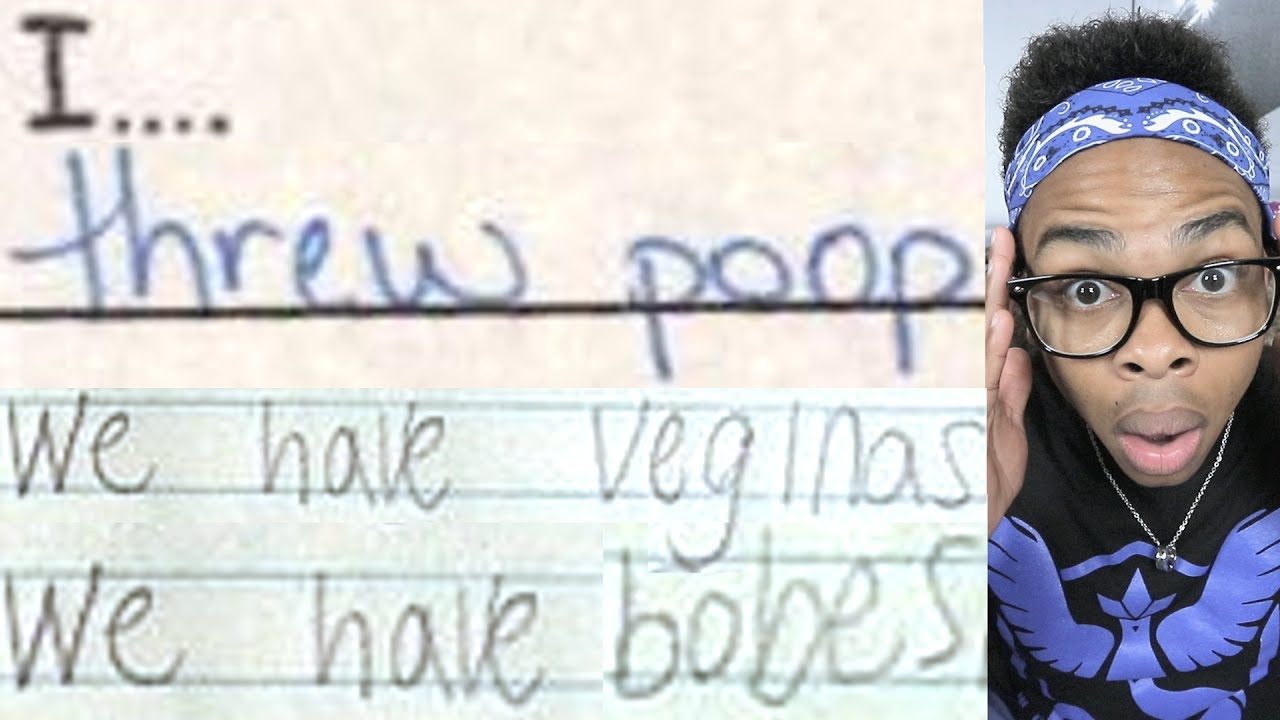 I....
threw poop
We have veginas
We have bobes